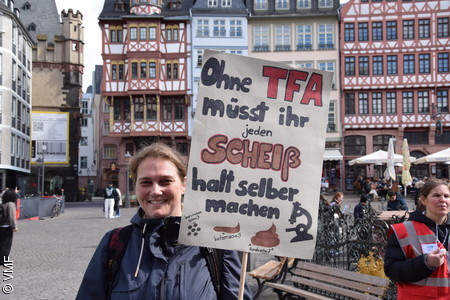 Ohne TFA
müsst ihr
jeden
SCHEIß
halt selber
machen
© VMF